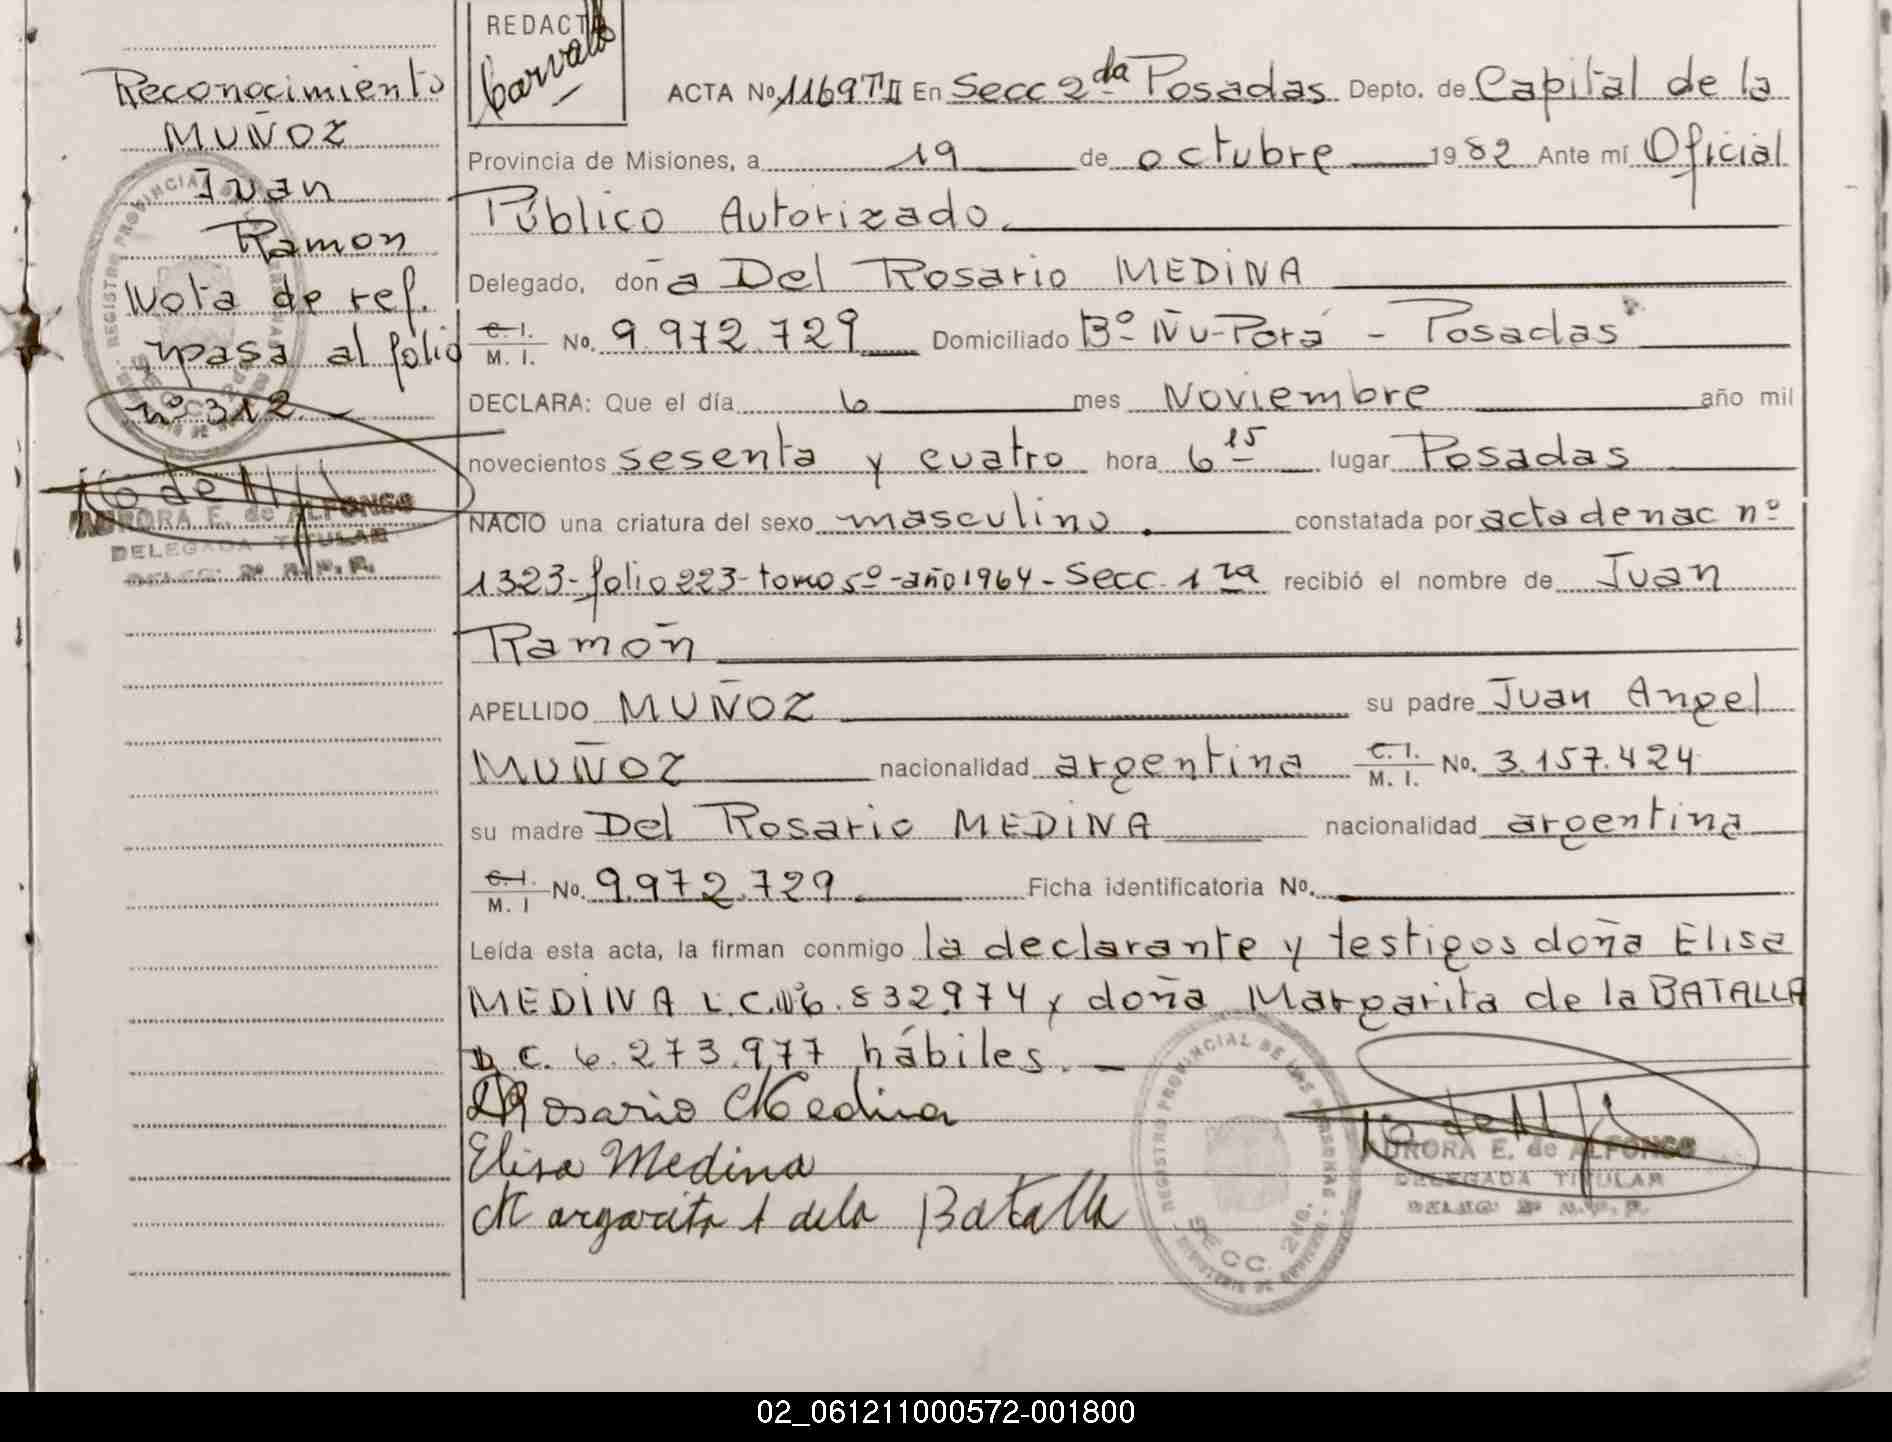 Reconocimiento
MUÑOZ
Juan
Ramon
Nota de ref.
pasa al folio
nº 312.
AURORA E. de ALFONSO
DELEGADA TITULAR
DELEG: 2ª R.P.P.
REDACT
Carvallo
ACTA No. 1169 TII En Secc 2da Posadas Depto. de Capital de la
Provincia de Misiones, a 19 de octubre 1982 Ante mí Oficial
Público Autorizado.
Delegado, doña Del Rosario MEDINA
C. I. / M. I. No. 9.972.729 Domiciliado Bº Ñu-Porá - Posadas
DECLARA: Que el día 6 mes Noviembre año mil
novecientos sesenta y cuatro hora 6 15 lugar Posadas
NACIO una criatura del sexo masculino. constatada por acta de nac nº
1323-folio 223-tomo 5º-año 1964-Secc. 1ra recibió el nombre de Juan
Ramón
APELLIDO MUÑOZ su padre Juan Angel
MUÑOZ nacionalidad argentina C. I. / M. I. No. 3.157.424
su madre Del Rosario MEDINA nacionalidad argentina
C. I. / M. I No. 9.972.729. Ficha identificatoria No.
Leída esta acta, la firman conmigo la declarante y testigos doña Elisa
MEDINA L.C.Nº6.832.974 y doña Margarita de la BATALLA
L.C. 6.273.977 hábiles.-
D Rosario Medina
Elisa Medina
Margarita A de la Batalla
REGISTRO PROVINCIAL DE LAS PERSONAS
SECC. 2da.
AURORA E. de ALFONSO
DELEGADA TITULAR
DELEG: 2ª R.P.P.
02_061211000572-001800